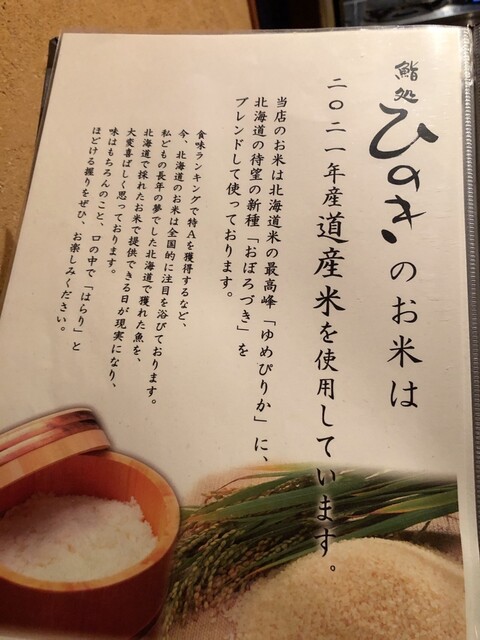 鮨処
ひのきのお米は
二〇二一年産道産米を使用しています。
当店のお米は北海道米の最高峰「ゆめぴりか」に、
北海道の待望の新種「おぼろづき」を
ブレンドして使っております。
食味ランキングで特Aを獲得するなど、
今、北海道のお米は全国的に注目を浴びております。
私どもの長年の夢でした北海道で獲れた魚を、
北海道で採れたお米で提供できる日が現実になり、
大変喜ばしく思っております。
味はもちろんのこと、口の中で「はらり」と
ほどける握りをぜひ、お楽しみください。